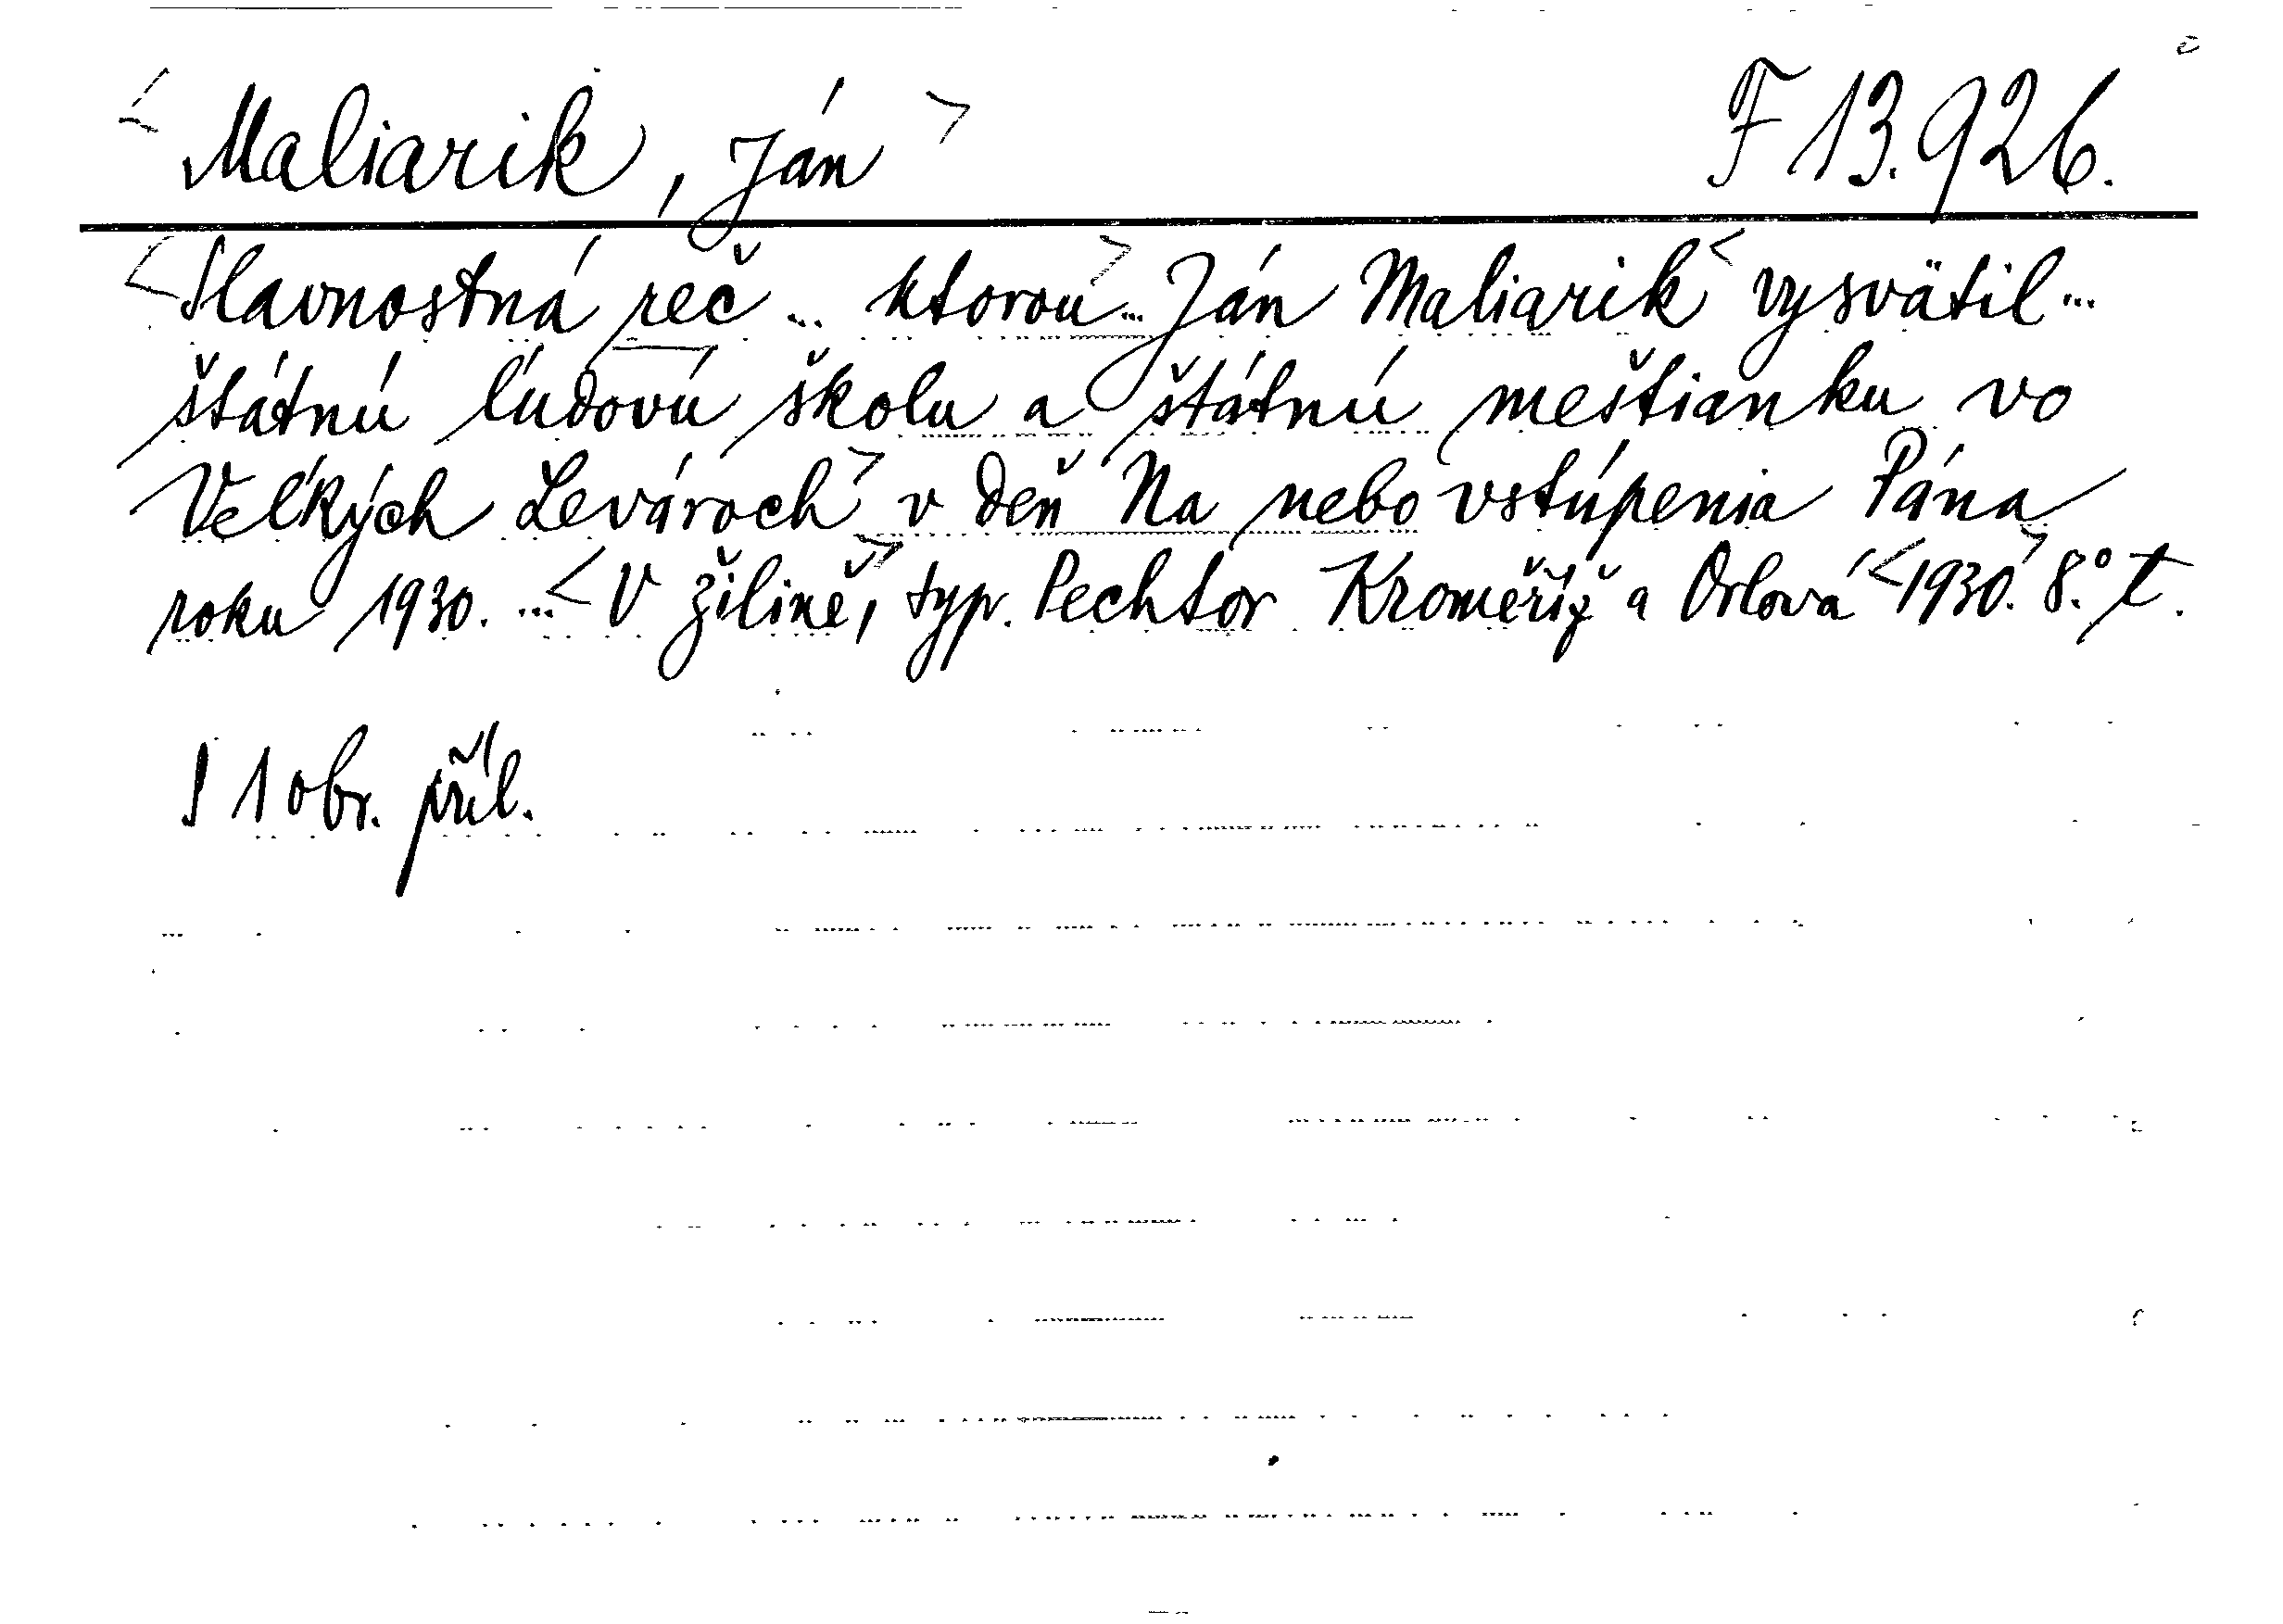 <Maliarik, Ján> F 13.926.
<Slavnostná reč ... ktorou> ... Ján Maliarik < vysvätil ...
štátnú ľudovú školu a štátnú meštianku vo
Veľkých Levároch> v deň Na nebo vstúpenia Pána
roku 1930. ... < V Žilině,> typ. Pechtor Kroměříž a Orlová <1930.> 8.° t.
S 1 obr. příl.